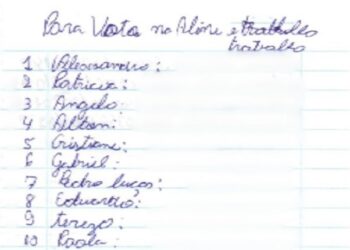 Para Vota na Aline e trabales
trabales
1 Alessandro:
2 Patricia:
3 Angelo:
4 Ailton:
5 Cristiane:
6 Gabriel:
7 Pedro lucas:
8 Eduardo:
9 tereza:
10 Paola: